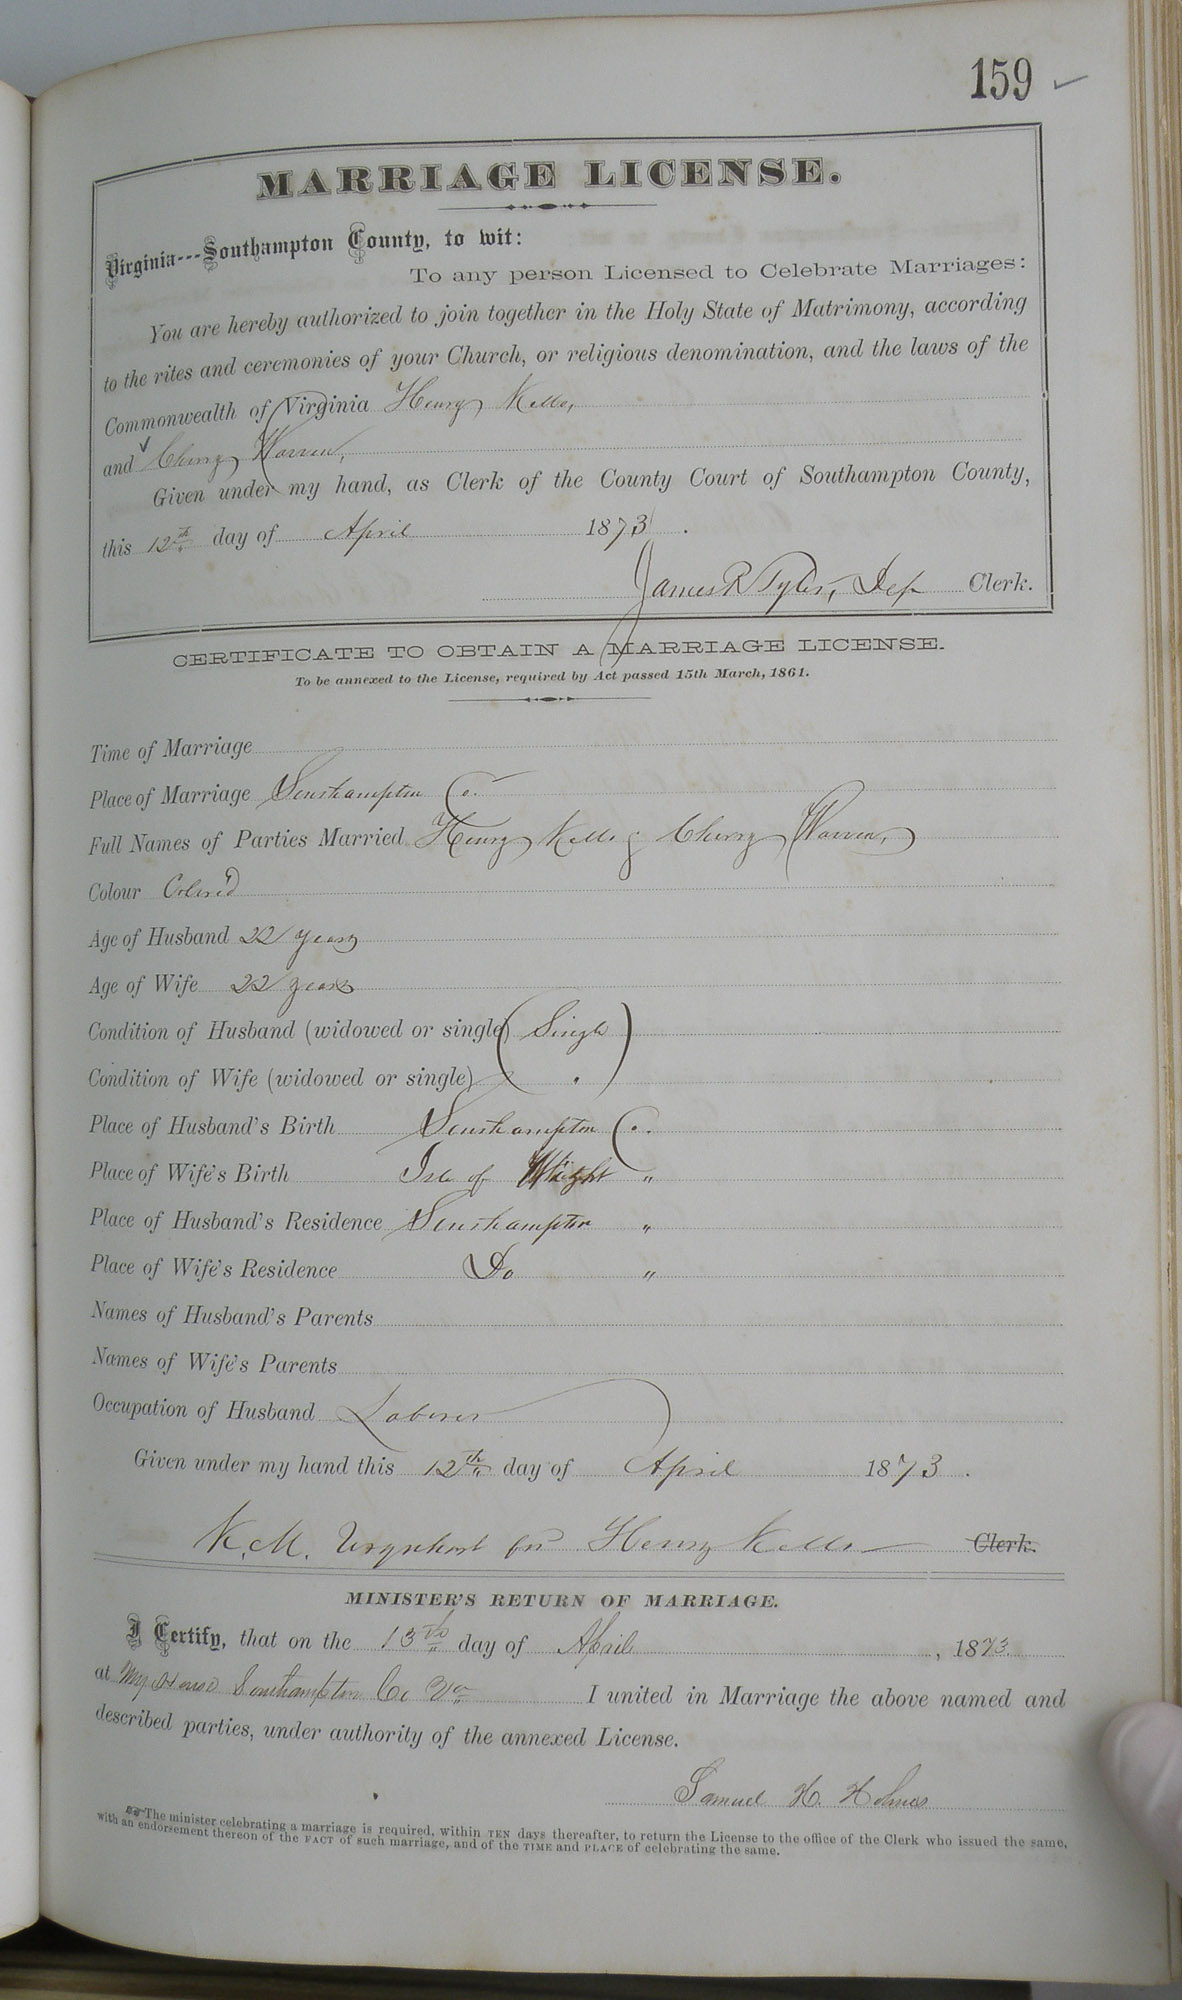 159
MARRIAGE LICENSE.
Virginia---Southampton County, to wit:
To any person Licensed to Celebrate Marriages:
You are hereby authorized to join together in the Holy State of Matrimony, according
to the rites and ceremonies of your Church, or religious denomination, and the laws of the
Commonwealth of Virginia Henry Kello,
and Cherry Warren,
Given under my hand, as Clerk of the County Court of Southampton County,
this 12th day of April 1873.
James R Tyler, Dep Clerk.
CERTIFICATE TO OBTAIN A MARRIAGE LICENSE.
To be annexed to the License, required by Act passed 15th March, 1861.
Time of Marriage
Place of Marriage Southampton Co.
Full Names of Parties Married Henry Kello & Cherry Warren,
Colour Colored
Age of Husband 22 years
Age of Wife 22 years
Condition of Husband (widowed or single) Single
Condition of Wife (widowed or single) "
Place of Husband's Birth Southampton Co.
Place of Wife's Birth Isle of Wight "
Place of Husband's Residence Southampton "
Place of Wife's Residence Do "
Names of Husband's Parents
Names of Wife's Parents
Occupation of Husband Laborer
Given under my hand this 12th day of April 1873.
K. M. Urquhart for Henry Kello Clerk.
MINISTER'S RETURN OF MARRIAGE.
I Certify, that on the 13th day of April, 1873
at My House Southampton Co Va I united in Marriage the above named and
described parties, under authority of the annexed License.
Samuel H. Holmes
The minister celebrating a marriage is required, within TEN days thereafter, to return the License to the office of the Clerk who issued the same,
with an endorsement thereon of the FACT of such marriage, and of the TIME and PLACE of celebrating the same.